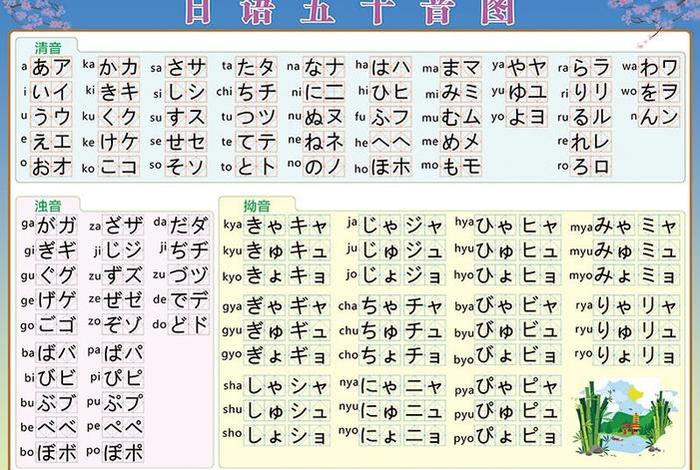 日语五十音图
清音
a あア ka かカ sa さサ ta たタ na なナ ha はハ ma まマ ya やヤ ra らラ wa わワ
i いイ ki きキ si しシ chi ちチ ni にニ hi ひヒ mi みミ yu ゆユ ri りリ wo をヲ
u うウ ku くク su すス tu つツ nu ぬヌ fu ふフ mu むム yo よヨ ru るル n んン
e えエ ke けケ se せセ te てテ ne ねネ he へヘ me めメ re れレ
o おオ ko こコ so そソ to とト no のノ ho ほホ mo もモ ro ろロ
浊音
ga がガ za ざザ da だダ
gi ぎギ ji じジ ji ぢヂ
gu ぐグ zu ずズ zu づヅ
ge げゲ ze ぜゼ de でデ
go ごゴ zo ぞゾ do どド
ba ばバ pa ぱパ
bi びビ pi ぴピ
bu ぶブ pu ぷプ
be べベ pe ぺペ
bo ぼボ po ぽポ
拗音
kya きゃキャ ja じゃジャ hya ひゃヒャ mya みゃミャ
kyu きゅキュ ju じゅジュ hyu ひゅヒュ myu みゅミュ
kyo きょキョ jo じょジョ hyo ひょヒョ myo みょミョ
gya ぎゃギャ cha ちゃチャ bya びゃビャ rya りゃリャ
gyu ぎゅギュ chu ちゅチュ byu びゅビュ ryu りゅリュ
gyo ぎょギョ cho ちょチョ byo びょビョ ryo りょリョ
sha しゃシャ nya にゃニャ pya ぴゃピャ
shu しゅシュ nyu にゅニュ pyu ぴゅピュ
sho しょショ nyo にょニョ pyo ぴょピョ